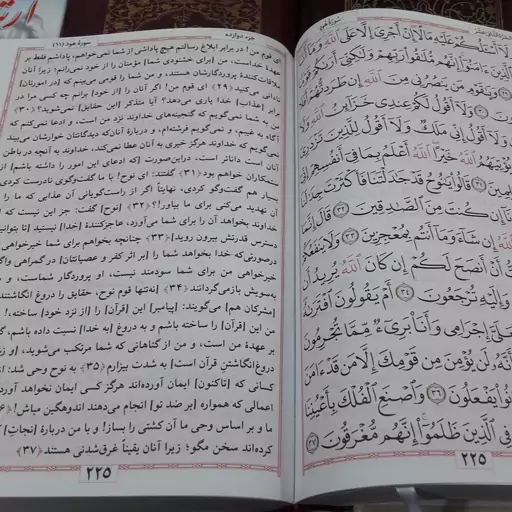 جزء دوازده
سورهٔ هود (۱۱)
ای قوم من! در برابر ابلاغ رسالتم هیچ پاداشی از شما نمی‌خواهم، پاداشم فقط بر
عهدهٔ خداست، من (برای خشنودی شما) مؤمنان را از خود نمی‌رانم؛ زیرا آنان
ملاقات‌کنندهٔ پروردگارشان هستند، و من شما را قومی می‌بینم که (در امورتان)
نادانی می‌کنید ﴿۲۹﴾ ای قوم من! اگر آنان را [از خود] برانم چه کسی مرا در
برابر [عذاب] خدا یاری می‌دهد؟ آیا متذکر [این حقایق] نمی‌شوید؟ ﴿۳۰﴾
من به شما نمی‌گویم که گنجینه‌های خداوند نزد من است، و ادعا نمی‌کنم که
آگاه به غیبم، و نمی‌گویم فرشته‌ام، و دربارهٔ آنان‌که دیدگانتان خوارشان می‌بیند
نمی‌گویم که خداوند هرگز خیری به آنان عطا نمی‌کند، خداوند به آنچه در باطن
آنان است داناتر است، دراین‌صورت [که ادعای این امور را داشته باشم] از
ستمکاران خواهم بود ﴿۳۱﴾ گفتند: ای نوح! با ما گفت‌وگوی نادرست کردی
بسیار هم گفت‌وگو کردی، نهایتاً اگر از راست‌گویانی آن عذابی که ما را به
آن تهدید می‌کنی برای ما بیاور!؟ ﴿۳۲﴾ [نوح] گفت: جز این نیست که اگر
خداوند بخواهد آن را برای شما می‌آورد، عاجزکنندهٔ [خدا] نیستید [تا بتوانید از
دسترس قدرتش بیرون روید] ﴿۳۳﴾ چنانچه بخواهم برای شما خیرخواهی
درصورتی‌که خدا بخواهد شما را [بر اثر کفر و عصیانتان] در گمراهی واگذارد
خیرخواهی من برای شما سودمند نیست، او پروردگار شماست، و
به‌سویش بازمی‌گردانند ﴿۳۴﴾ [نه‌تنها قوم نوح، حقایق را دروغ انگاشتند
[مشرکان هم] می‌گویند: [پیامبر] این [قرآن] را [از نزد خود] ساخته،!
من این [قرآن] را ساخته باشم و به دروغ [به خدا] نسبت داده باشم،
بر عهدهٔ من است، و من از گناهانی که شما مرتکب می‌شوید، (و
دروغ‌انگاشتن قرآن است) به شدت بیزارم ﴿۳۵﴾ به نوح وحی شد: از
کسانی که [تاکنون] ایمان آورده‌اند هرگز کسی ایمان نخواهد آورد
اعمالی که همواره [بر ضد تو] انجام می‌دهند اندوهگین مباش!
ما و بر اساس وحی ما آن کشتی را بساز! و با من دربارهٔ [نجات]
کرده‌اند سخن مگو؛ زیرا آنان یقیناً غرق‌شدنی هستند ﴿۳۷﴾
۲۲۵
لَآ أَسْـَٔلُكُمْ عَلَيْهِ مَالًا إِنْ أَجْرِىَ إِلَّا عَلَى ٱللَّهِ وَمَآ أَنَا۠
ٱلَّذِينَ ءَامَنُوٓا۟ إِنَّهُم مُّلَـٰقُوا۟ رَبِّهِمْ وَلَـٰكِنِّىٓ أَرَىٰكُمْ قَوْمًا
وَيَـٰقَوْمِ مَن يَنصُرُنِى مِنَ ٱللَّهِ إِن طَرَدتُّهُمْ
وَلَآ أَقُولُ لَكُمْ عِندِى خَزَآئِنُ ٱللَّهِ وَلَآ
وَلَآ أَقُولُ إِنِّى مَلَكٌ وَلَآ أَقُولُ لِلَّذِينَ تَزْدَرِىٓ
يُؤْتِيَهُمُ ٱللَّهُ خَيْرًا ٱللَّهُ أَعْلَمُ بِمَا فِىٓ أَنفُسِهِمْ إِنِّىٓ
۳۱ قَالُوا۟ يَـٰنُوحُ قَدْ جَـٰدَلْتَنَا فَأَكْثَرْتَ جِدَٰلَنَا
إِن كُنتَ مِنَ ٱلصَّـٰدِقِينَ ۳۲ قَالَ إِنَّمَا
ٱللَّهُ إِن شَآءَ وَمَآ أَنتُم بِمُعْجِزِينَ ۳۳ وَلَا يَنفَعُكُمْ
أَنْ أَنصَحَ لَكُمْ إِن كَانَ ٱللَّهُ يُرِيدُ أَن
وَإِلَيْهِ تُرْجَعُونَ ۳۴ أَمْ يَقُولُونَ ٱفْتَرَىٰهُ
فَعَلَىَّ إِجْرَامِى وَأَنَا۠ بَرِىٓءٌ مِّمَّا تُجْرِمُونَ
أَنَّهُۥ لَن يُؤْمِنَ مِن قَوْمِكَ إِلَّا مَن قَدْ ءَامَنَ
كَانُوا۟ يَفْعَلُونَ ۳۶ وَٱصْنَعِ ٱلْفُلْكَ بِأَعْيُنِنَا
فِى ٱلَّذِينَ ظَلَمُوٓا۟ إِنَّهُم مُّغْرَقُونَ ۳۷
۲۲۵